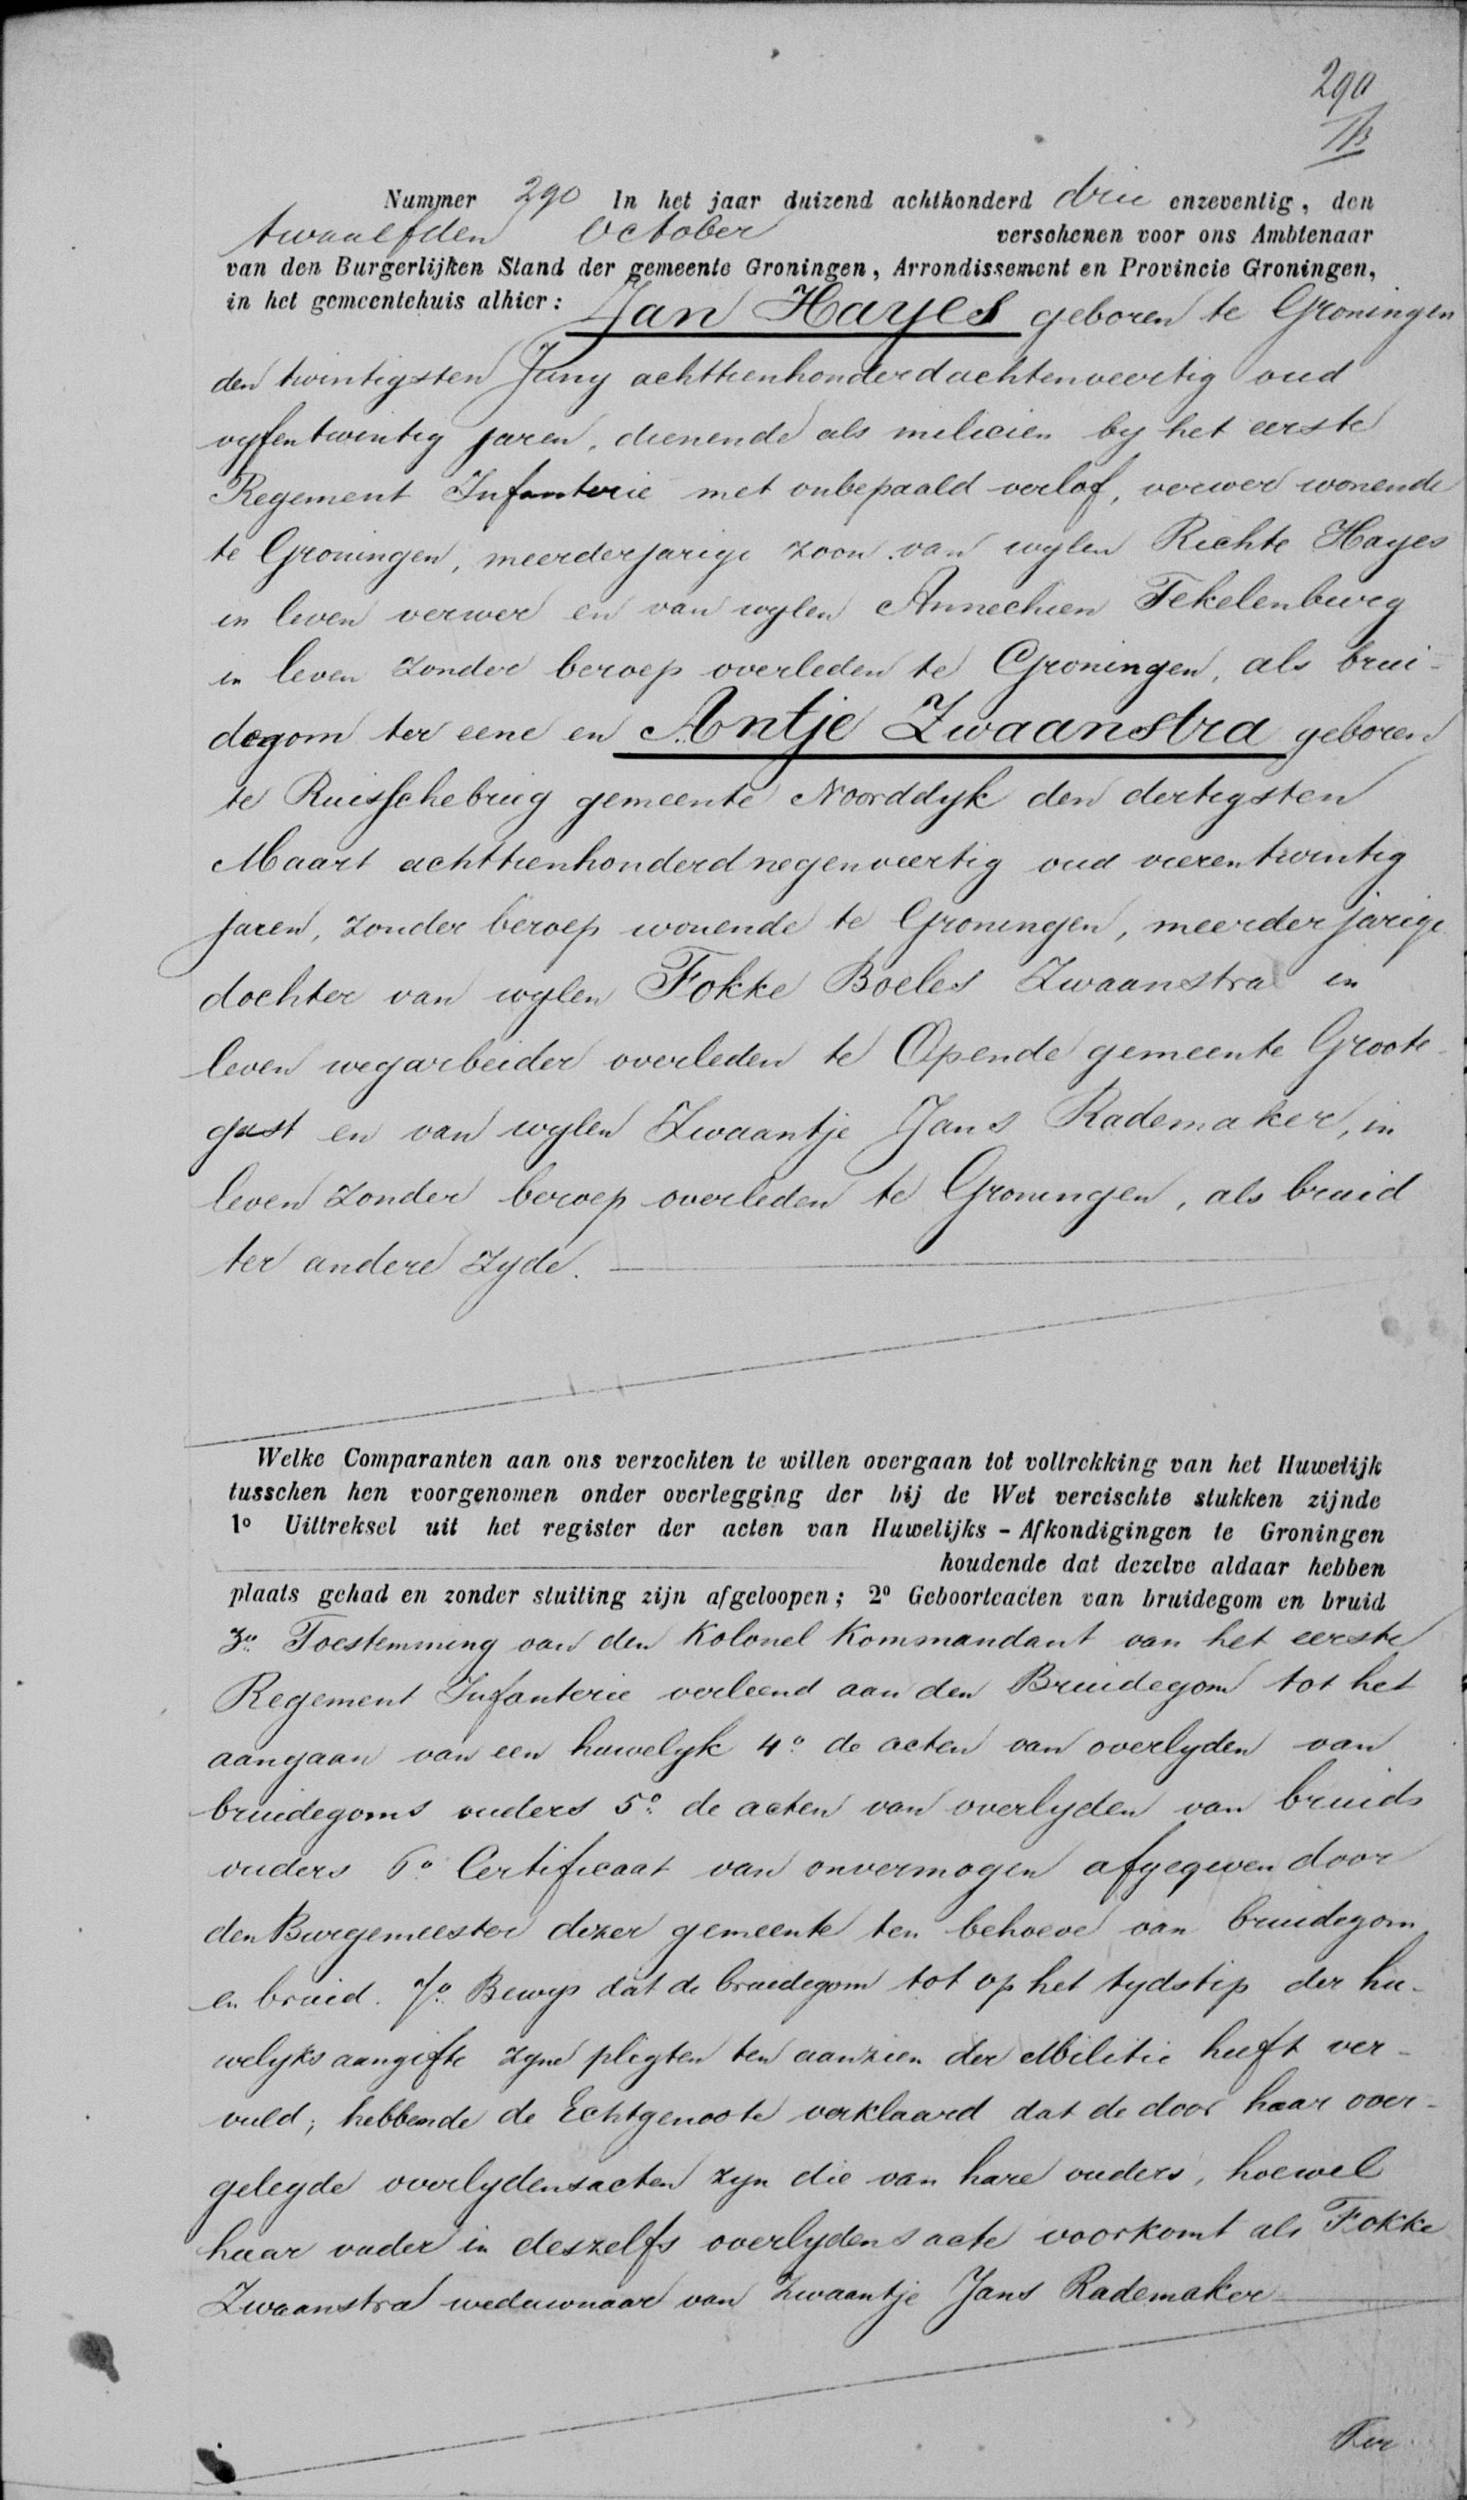 290
Nummer 290 In het jaar duizend achthonderd drie enzeventig, den
twaalfden October verschenen voor ons Ambtenaar
van den Burgerlijken Stand der gemeente Groningen, Arrondissement en Provincie Groningen,
in het gemeentehuis alhier: Jan Hayes geboren te Groningen
den twintigsten Juny achttienhonderdachtenveertig oud
vyfentwintig jaren, dienende als milicien by het eerste
Regement Infanterie met onbepaald verlof, verwer wonende
te Groningen, meerderjarige zoon van wylen Richte Hayes
in leven verwer en van wylen Annechien Tekelenburg
in leven zonder beroep overleden te Groningen, als brui-
degom ter eene en Antje Zwaanstra geboren
te Ruisschebrug gemeente Noorddyk den dertigsten
Maart achttienhonderdnegenveertig oud vierentwintig
jaren, zonder beroep wonende te Groningen, meerderjarige
dochter van wylen Fokke Boeles Zwaanstra in
leven wegarbeider overleden te Opende gemeente Groote-
gast en van wylen Zwaantje Jans Rademaker, in
leven zonder beroep overleden te Groningen, als bruid
ter andere zyde.
Welke Comparanten aan ons verzochten te willen overgaan tot voltrekking van het Huwelijk
tusschen hen voorgenomen onder overlegging der bij de Wet vereischte stukken zijnde
1o Uittreksel uit het register der acten van Huwelijks - Afkondigingen te Groningen
houdende dat dezelve aldaar hebben
plaats gehad en zonder stuiting zijn afgeloopen; 2o Geboorteacten van bruidegom en bruid
3o Toestemming van den Kolonel Kommandant van het eerste
Regement Infanterie verleend aan den Bruidegom tot het
aangaan van een huwelyk 4o de acten van overlyden van
bruidegoms ouders 5o de acten van overlyden van bruids
ouders 6o Certificaat van onvermogen afgegeven door
den Burgemeester dezer gemeente ten behoeve van bruidegom
en bruid. 7o Bewys dat de bruidegom tot op het tydstip der hu-
welyks aangifte zyne pligten ten aanzien der Militie heeft ver-
vuld; hebbende de Echtgenoote verklaard dat de door haar over-
gelegde overlydensacten zyn die van hare ouders, hoewel
haar vader in deszelfs overlydensacte voorkomt als Fokke
Zwaanstra weduwnaar van Zwaantje Jans Rademaker
Ter